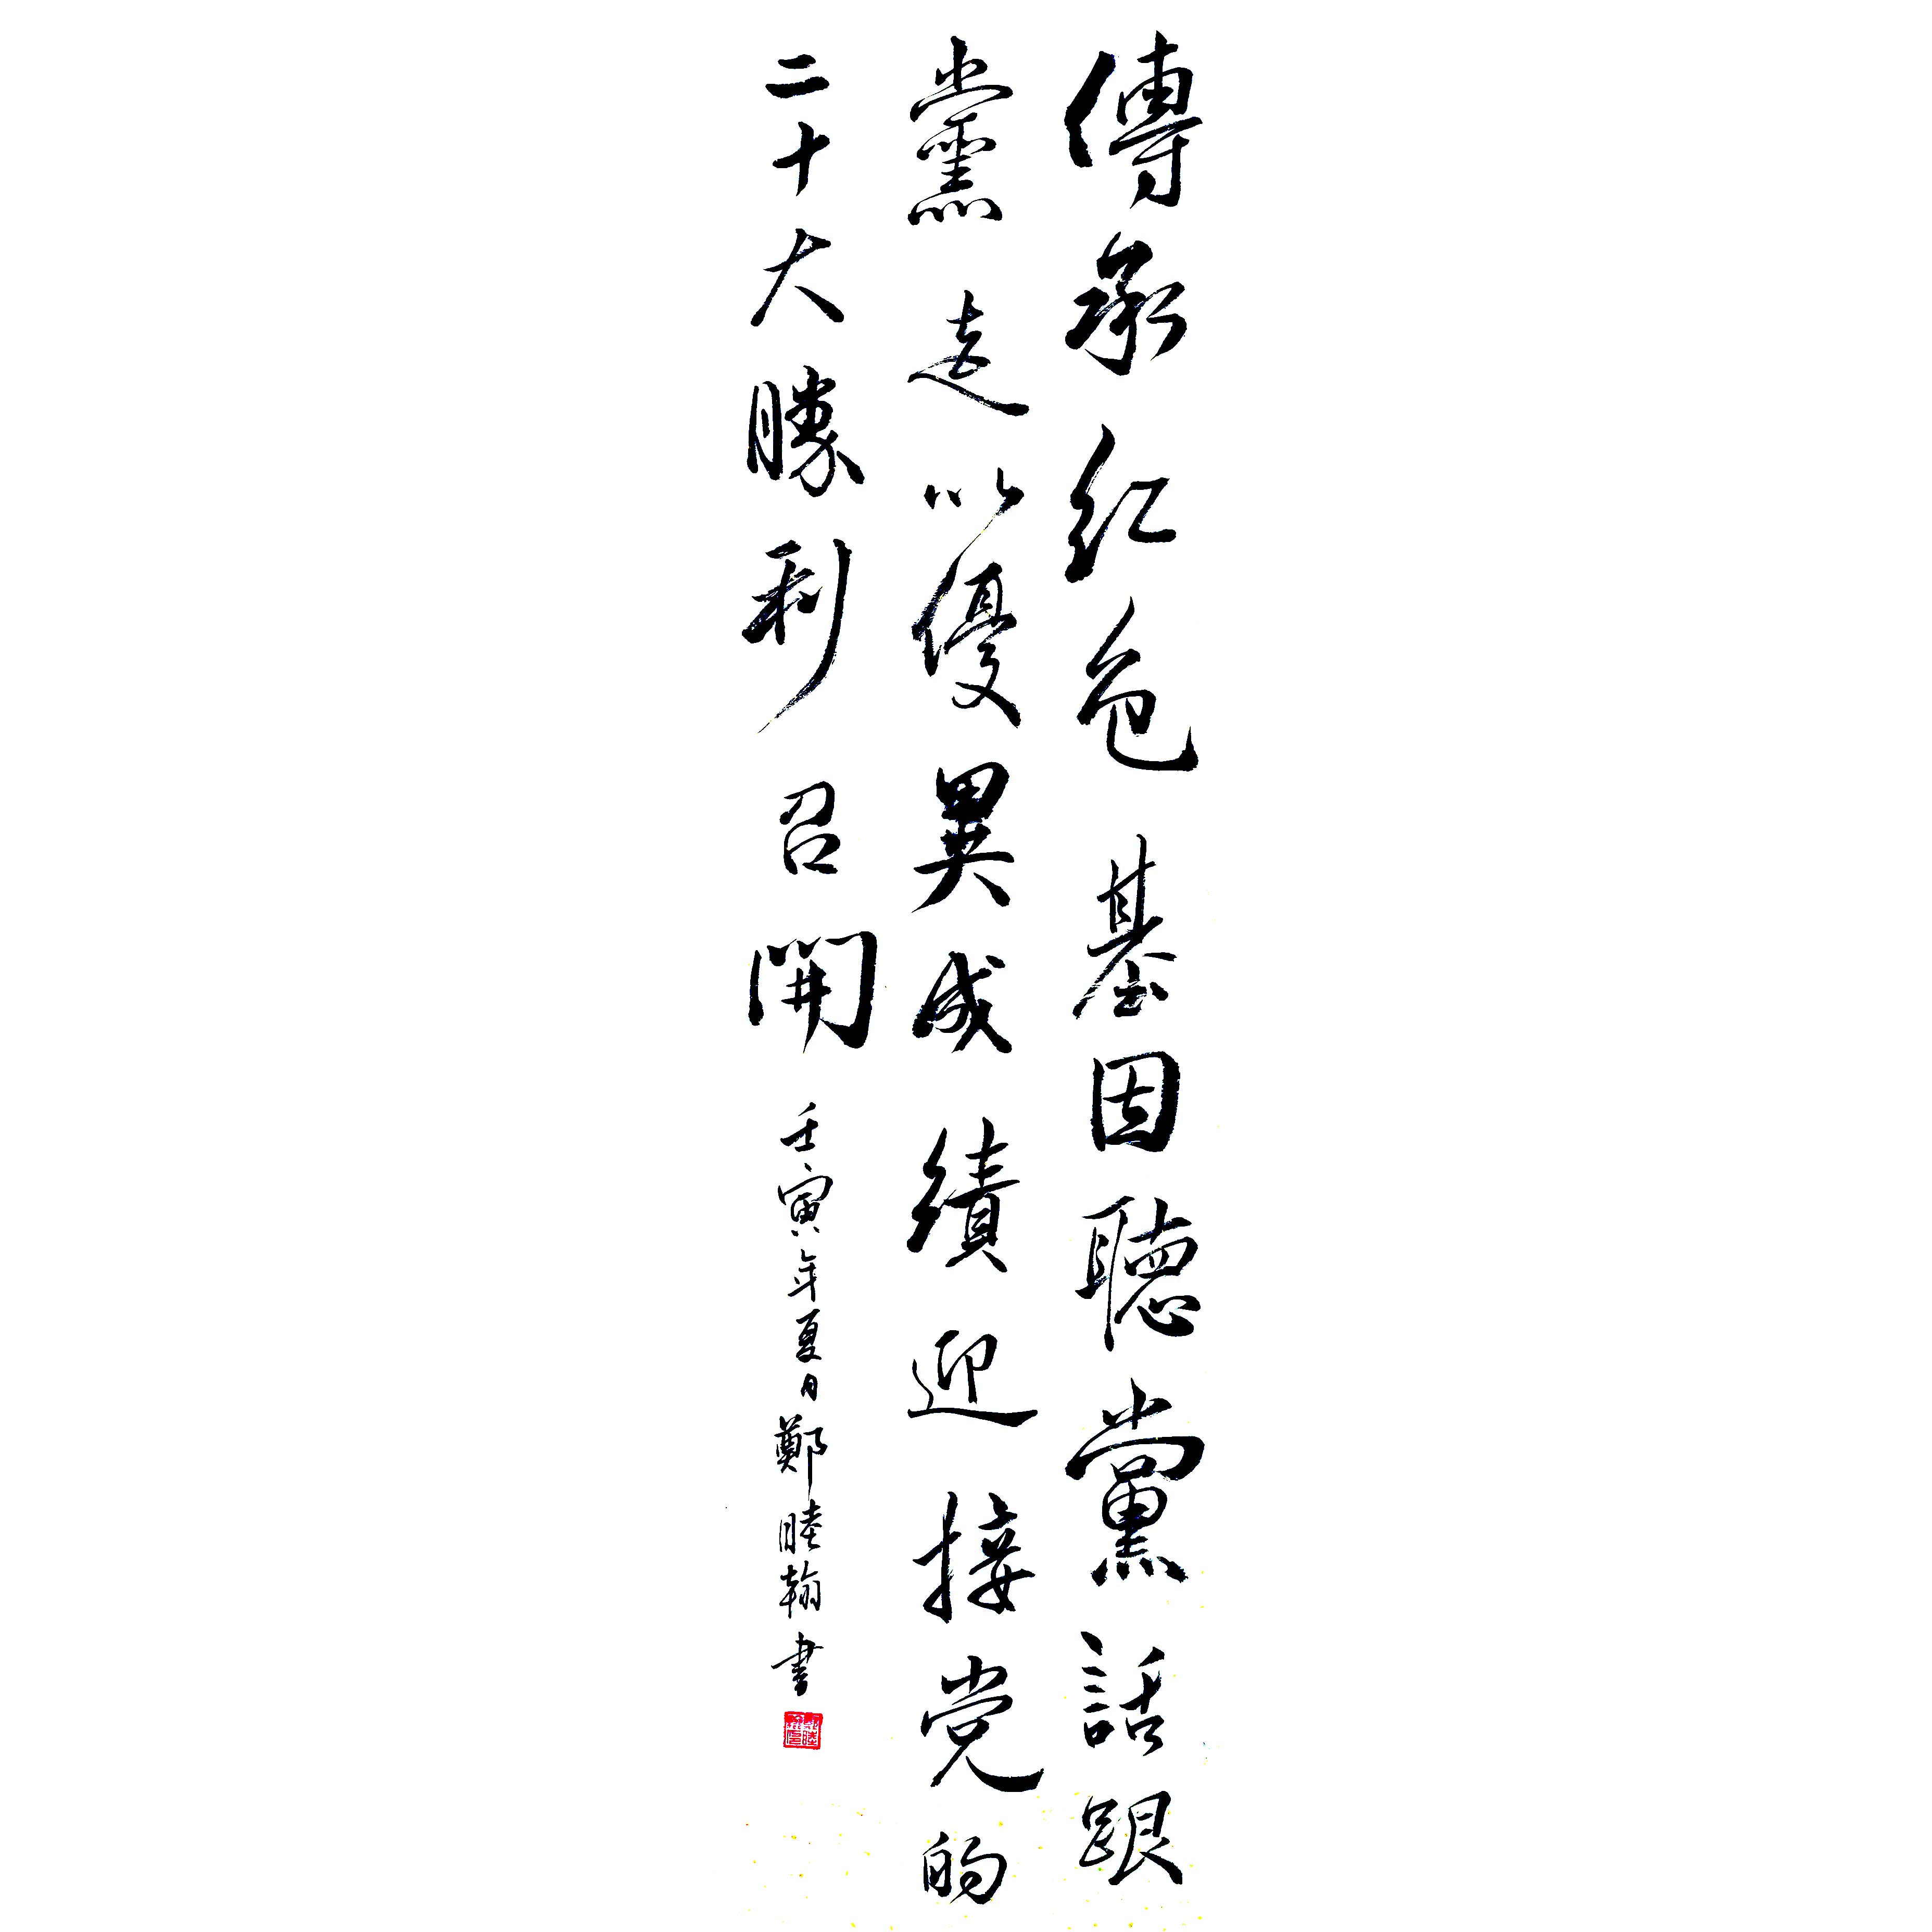 傳承紅色基因聽黨話跟
黨走以優異成績迎接党的
二十大勝利召開
壬寅年夏日鄭睦翰書